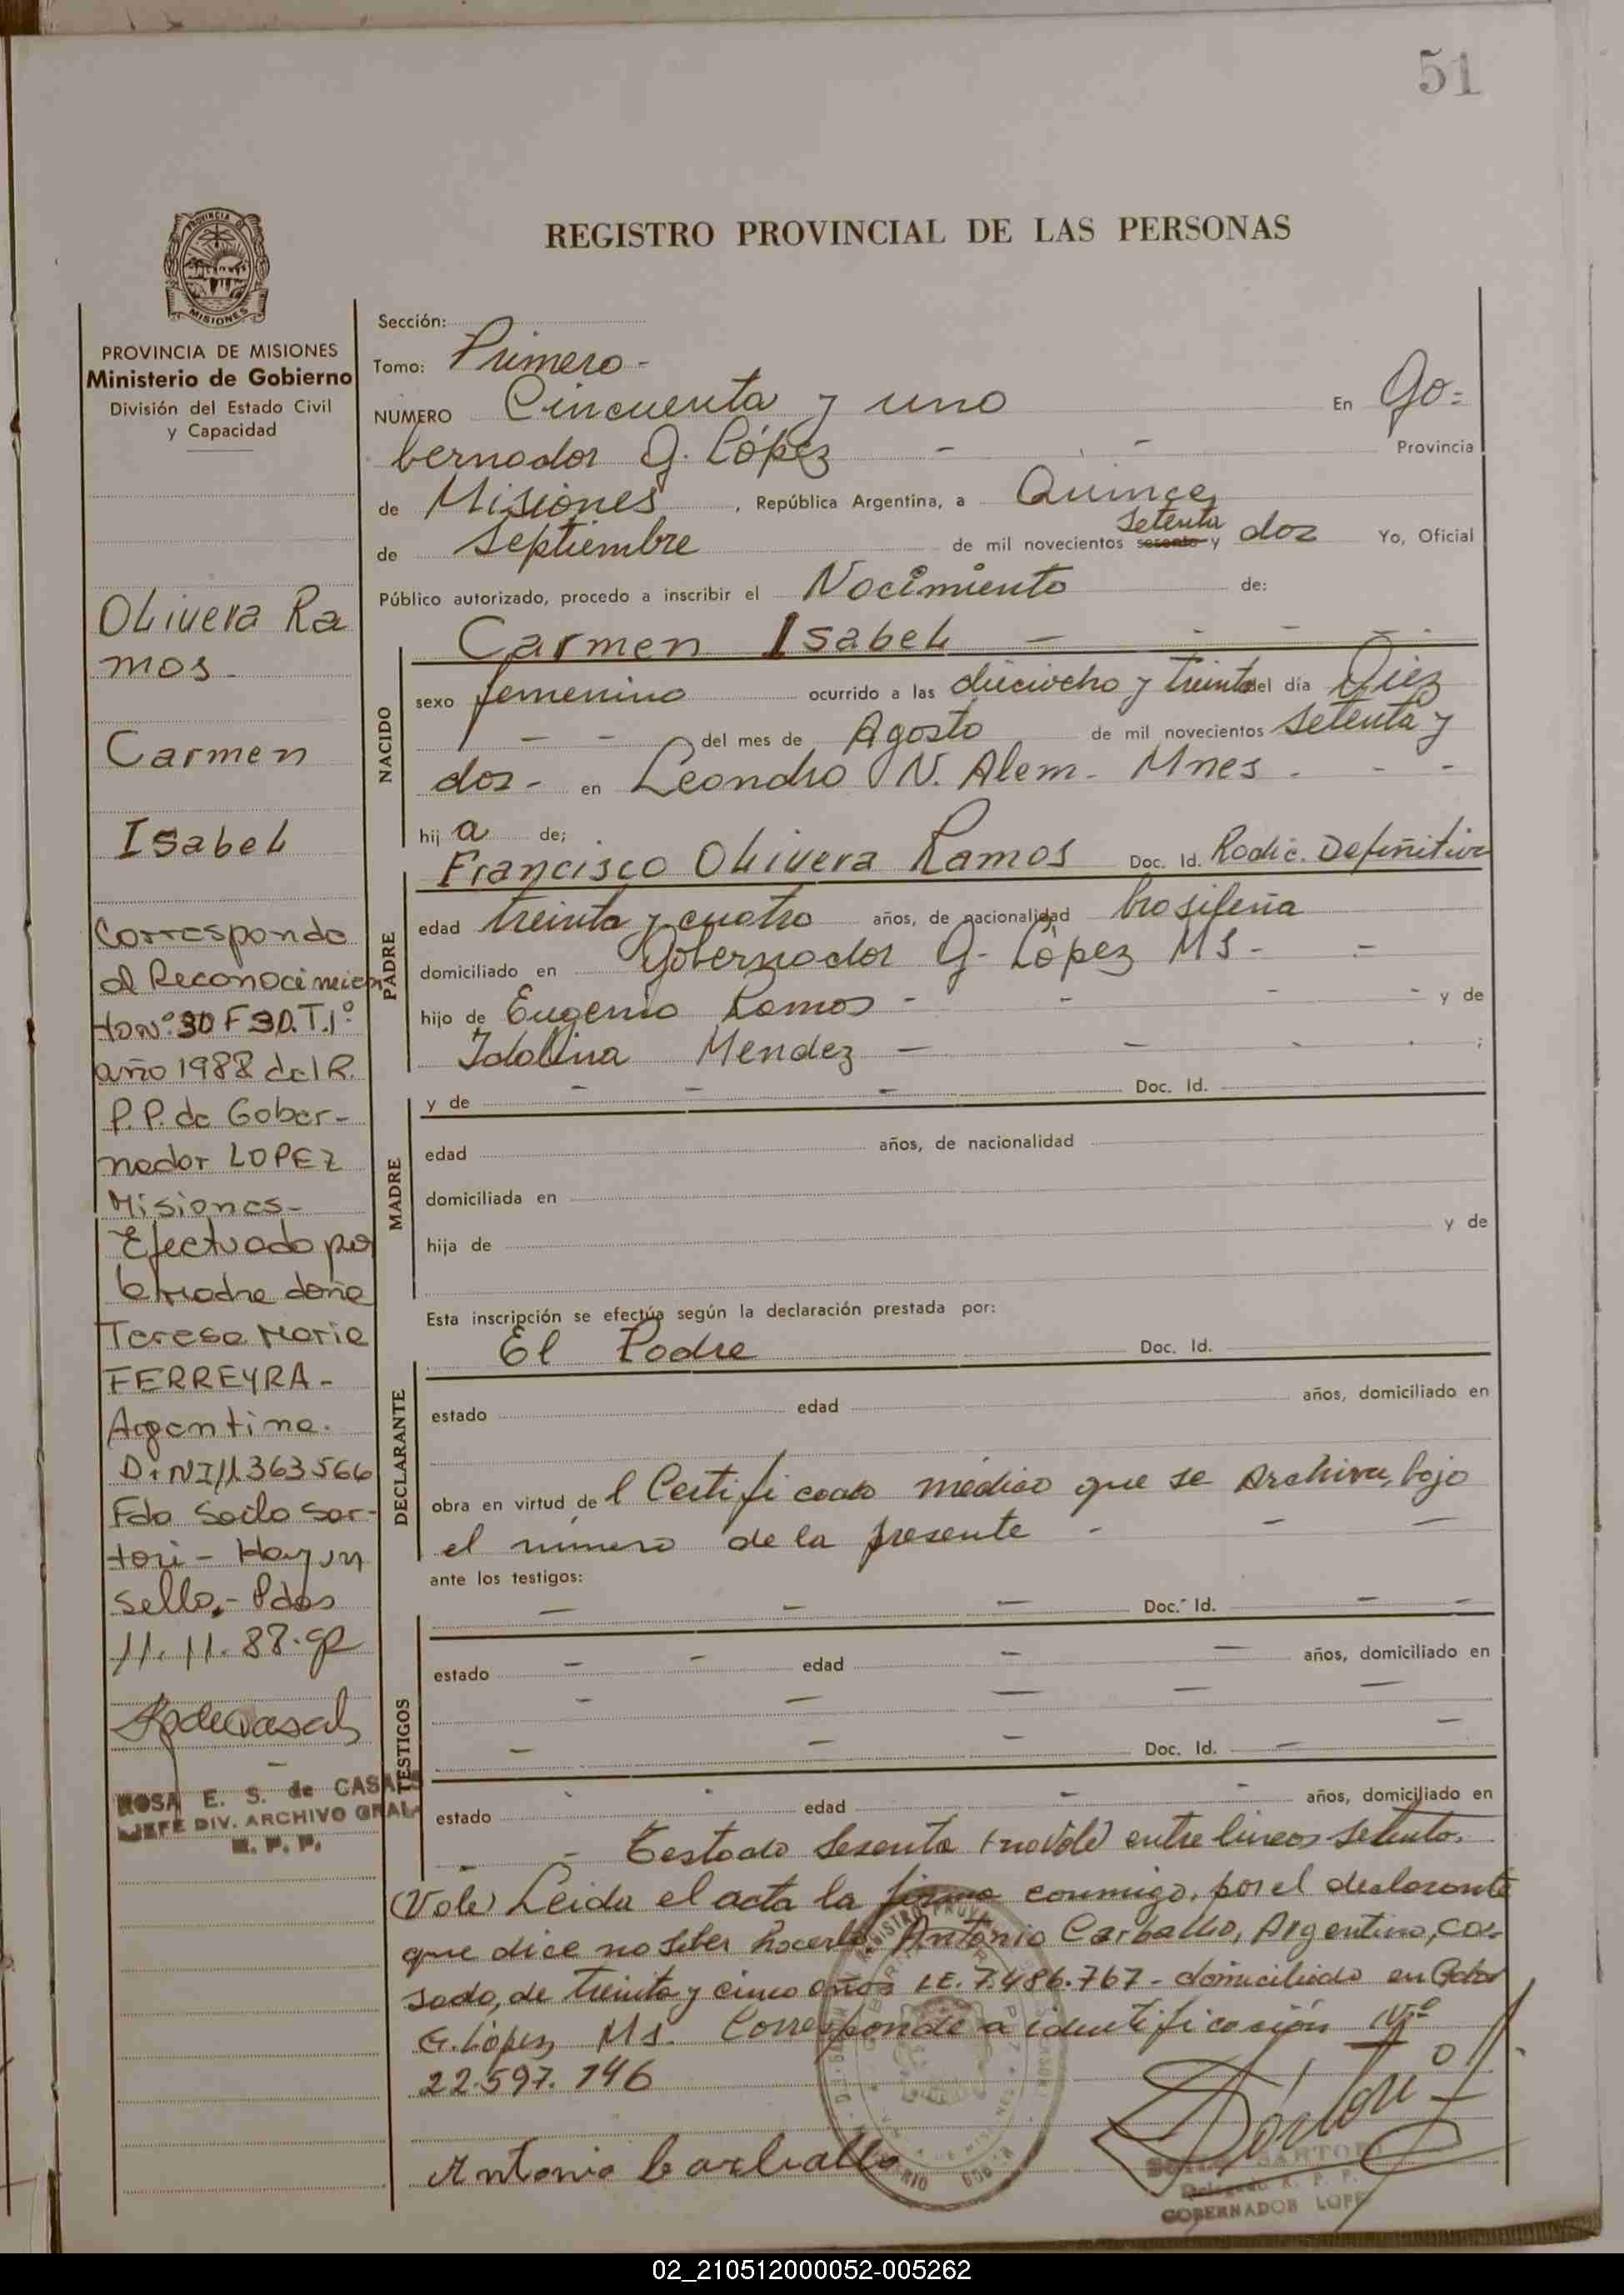 51
PROVINCIA DE
MISIONES
PROVINCIA DE MISIONES
Ministerio de Gobierno
División del Estado Civil
y Capacidad
Olivera Ra
mos -
Carmen
Isabel
Corresponde
al Reconocimien
to Nº 30 F 30. T. 1º
año 1988 del R.
P.P. de Gober-
nador LOPEZ
Misiones -
Efectuado por
la madre doña
Teresa Maria
FERREYRA -
Argentina.
D.N.I 11.363566
Fdo Soilo Sar-
tori - Hay un
sello. - Pdas
11. 11. 88.
ROSA E. S. de CASALS
JEFE DIV. ARCHIVO GRAL.
R. P. P.
REGISTRO PROVINCIAL DE LAS PERSONAS
Sección:
Tomo: Primero -
NUMERO Cincuenta y uno En Go-
bernador G. López - - Provincia
de Misiones, República Argentina, a Quince
de Septiembre de mil novecientos sesenta setenta y dos Yo, Oficial
Público autorizado, procedo a inscribir el Nacimiento de:
Carmen Isabel - - - -
NACIDO
sexo femenino ocurrido a las dieciocho y treinta del día Diez
- - del mes de Agosto de mil novecientos setenta y
dos - en Leandro N. Alem - Mnes. - -
hij a de;
Francisco Olivera Ramos Doc. Id. Radic. Definitiva
PADRE
edad treinta y cuatro años, de nacionalidad brasileña
domiciliado en Gobernador G. López MS - -
hijo de Eugenio Ramos - - - - y de
Idalina Mendez - - - - ;
y de - - - Doc. Id.
MADRE
edad años, de nacionalidad
domiciliada en
hija de y de
Esta inscripción se efectúa según la declaración prestada por:
El Padre Doc. Id.
DECLARANTE
estado edad años, domiciliado en
obra en virtud de l Certificado médico que se Archiva, bajo
el número de la presente - - -
ante los testigos:
- - - Doc. Id. - -
TESTIGOS
estado - - edad - - años, domiciliado en
- - - - -
- - - Doc. Id. -
estado edad - - años, domiciliado en
- - Testado sesenta (no vale) entre lineas setenta.
(Vale) Leida el acta la firma conmigo, por el declarante
que dice no saber hacerlo, Antonio Carballo, Argentino, ca-
sado, de treinta y cinco años L.E. 7.486.767 - domiciliado en Gdor
G. López Ms. Corresponde a identificación Nº
22.597.146
Antonio Carballo
SARTORI
Delegado R. P. P.
GOBERNADOR LOPEZ
02_210512000052-005262